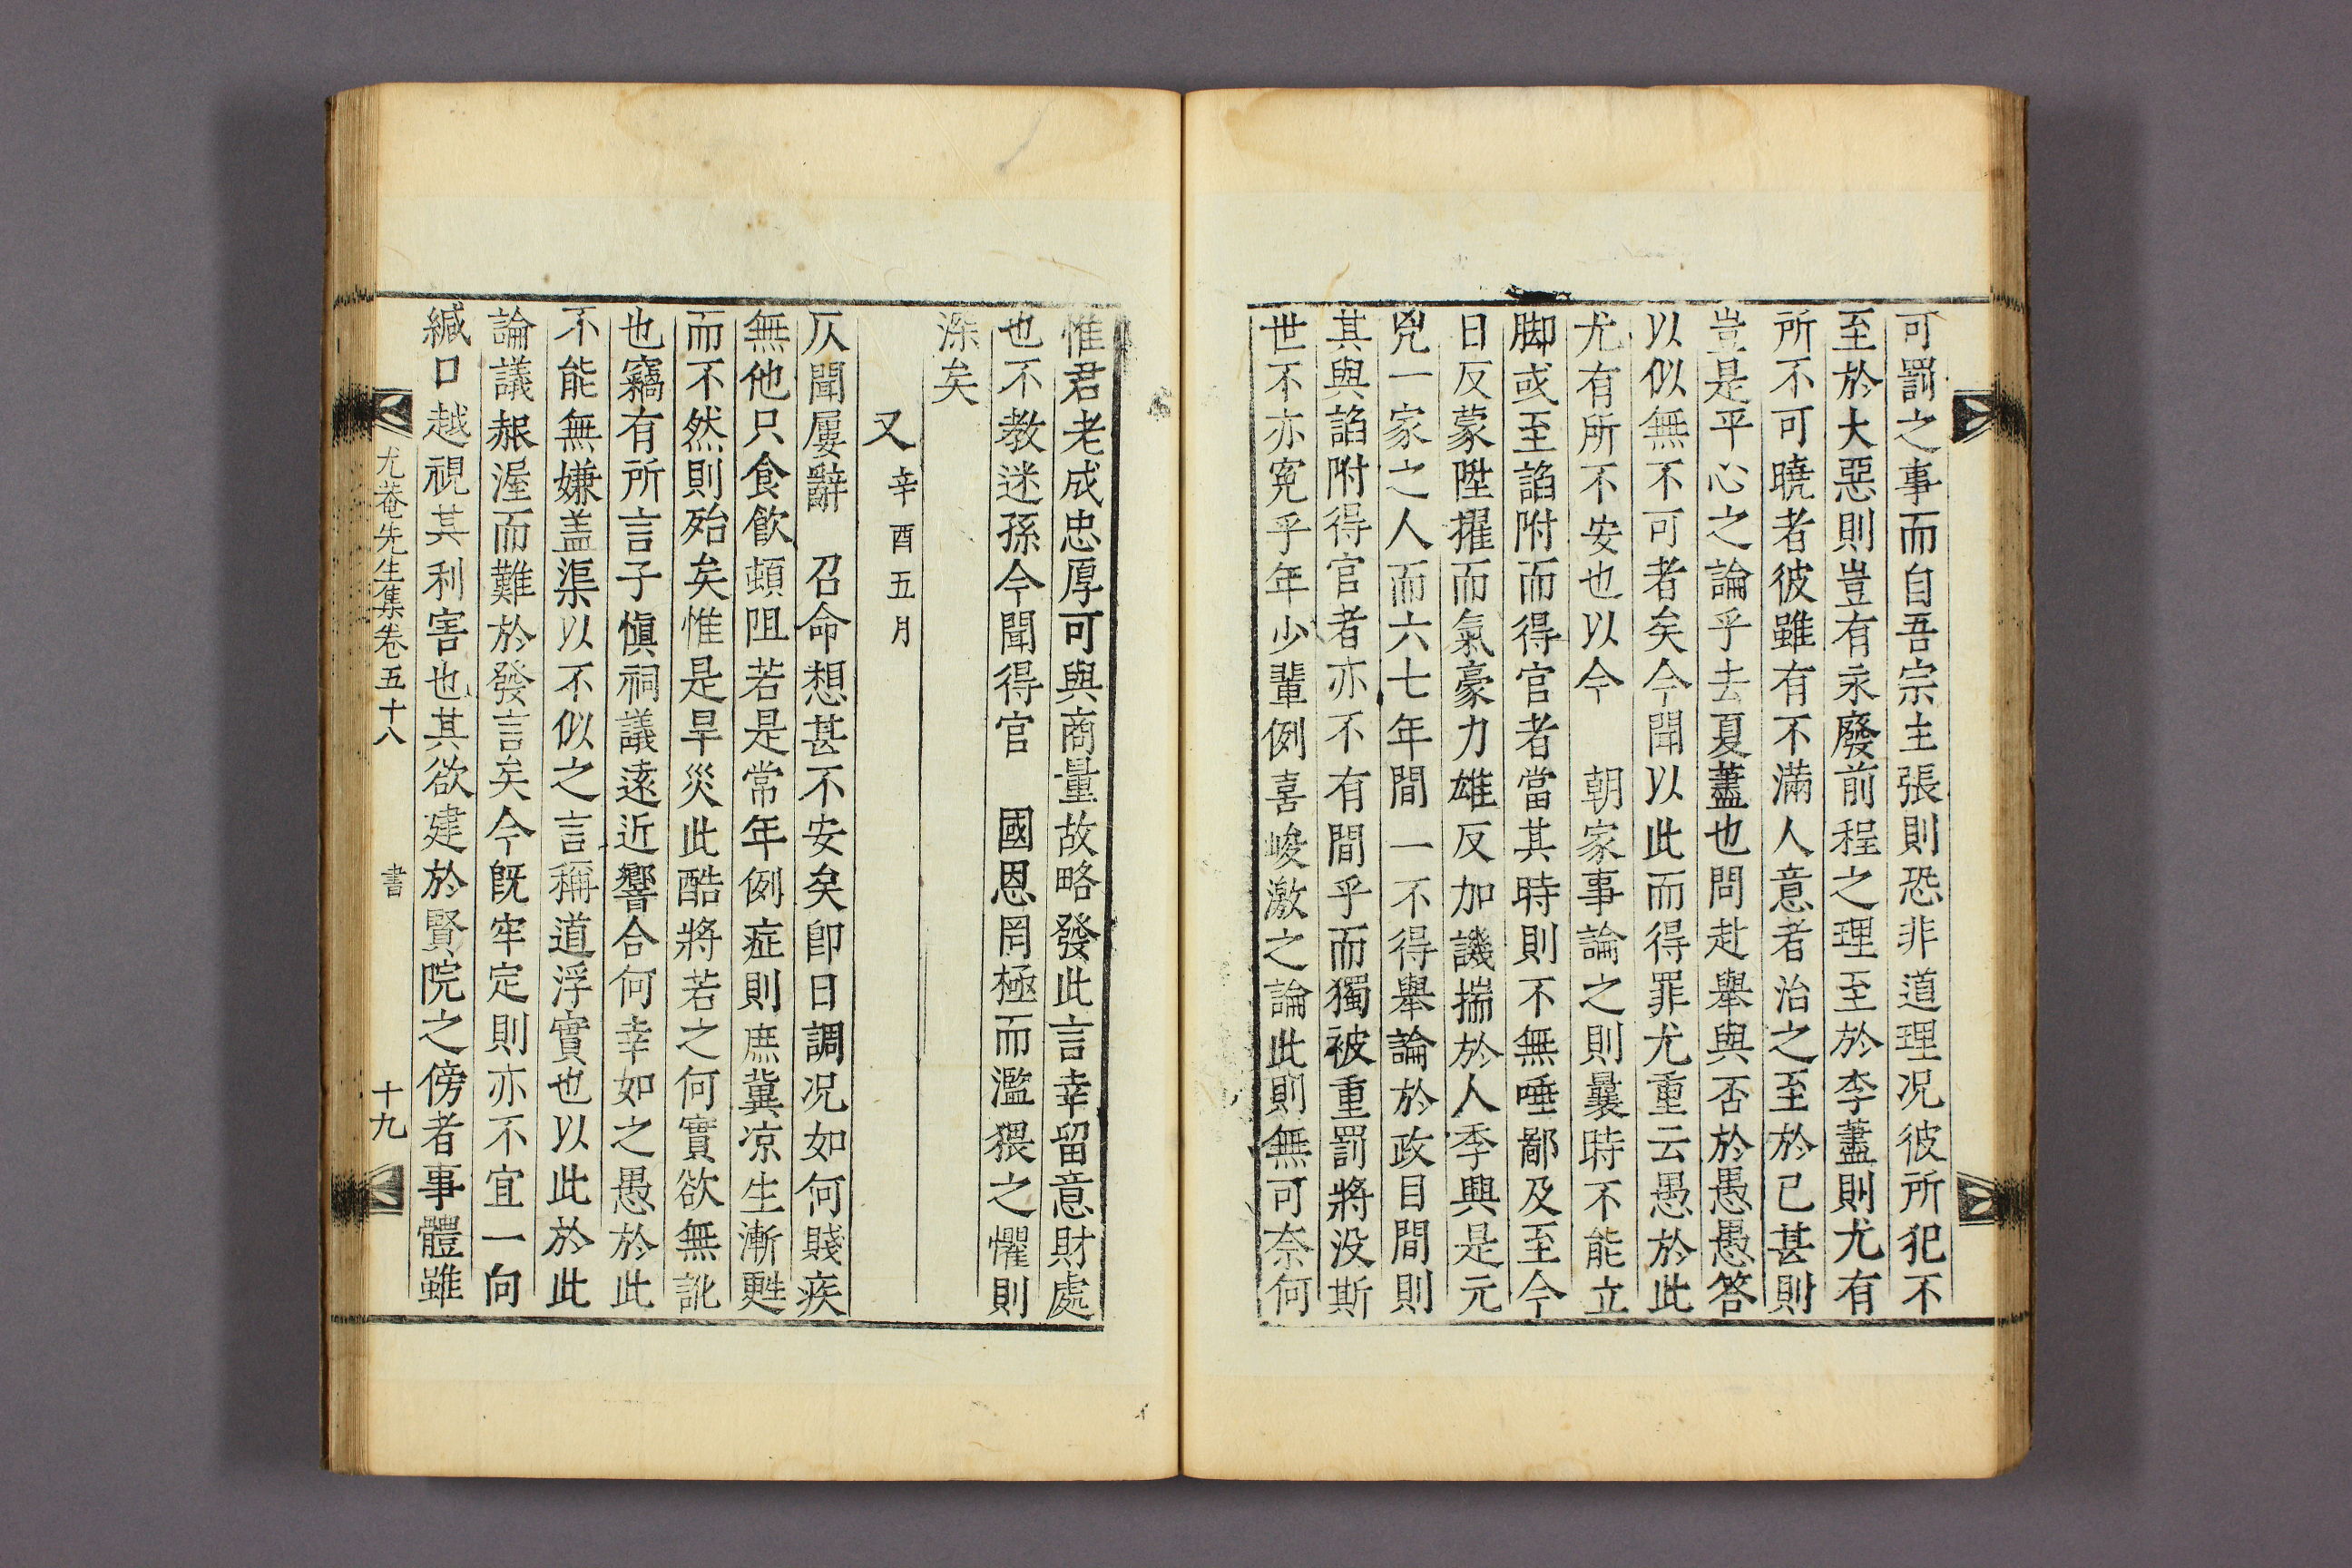 可罰之事而自吾宗主張則恐非道理况彼所犯不
至於大惡則豈有永廢前程之理至於李藎則尤有
所不可曉者彼雖有不滿人意者治之至於已甚則
豈是平心之論乎去夏藎也問赴舉與否於愚愚答
以似無不可者矣今聞以此而得罪尤重云愚於此
尤有所不安也以今　朝家事論之則曩時不能立
脚或至諂附而得官者當其時則不無唾鄙及至今
日反蒙陞擢而氣豪力雄反加譏揣於人季興是元
兇一家之人而六七年間一不得舉論於政目間則
其與諂附得官者亦不有間乎而獨被重罰將没斯
世不亦寃乎年少輩例喜峻激之論此則無可奈何
惟君老成忠厚可與商量故略發此言幸留意財處
也不教迷孫今聞得官　國恩罔極而濫猥之懼則
深矣
又 辛酉五月
仄聞屢辭　召命想甚不安矣卽日調况如何賤疾
無他只食飮頓阻若是常年例症則庶冀凉生漸甦
而不然則殆矣惟是旱災此酷將若之何實欲無訛
也竊有所言子愼祠議遠近響合何幸如之愚於此
不能無嫌盖渠以不似之言稱道浮實也以此於此
論議赧渥而難於發言矣今旣牢定則亦不宜一向
緘口越視其利害也其欲建於賢院之傍者事體雖
尤菴先生集卷五十八　書　十九